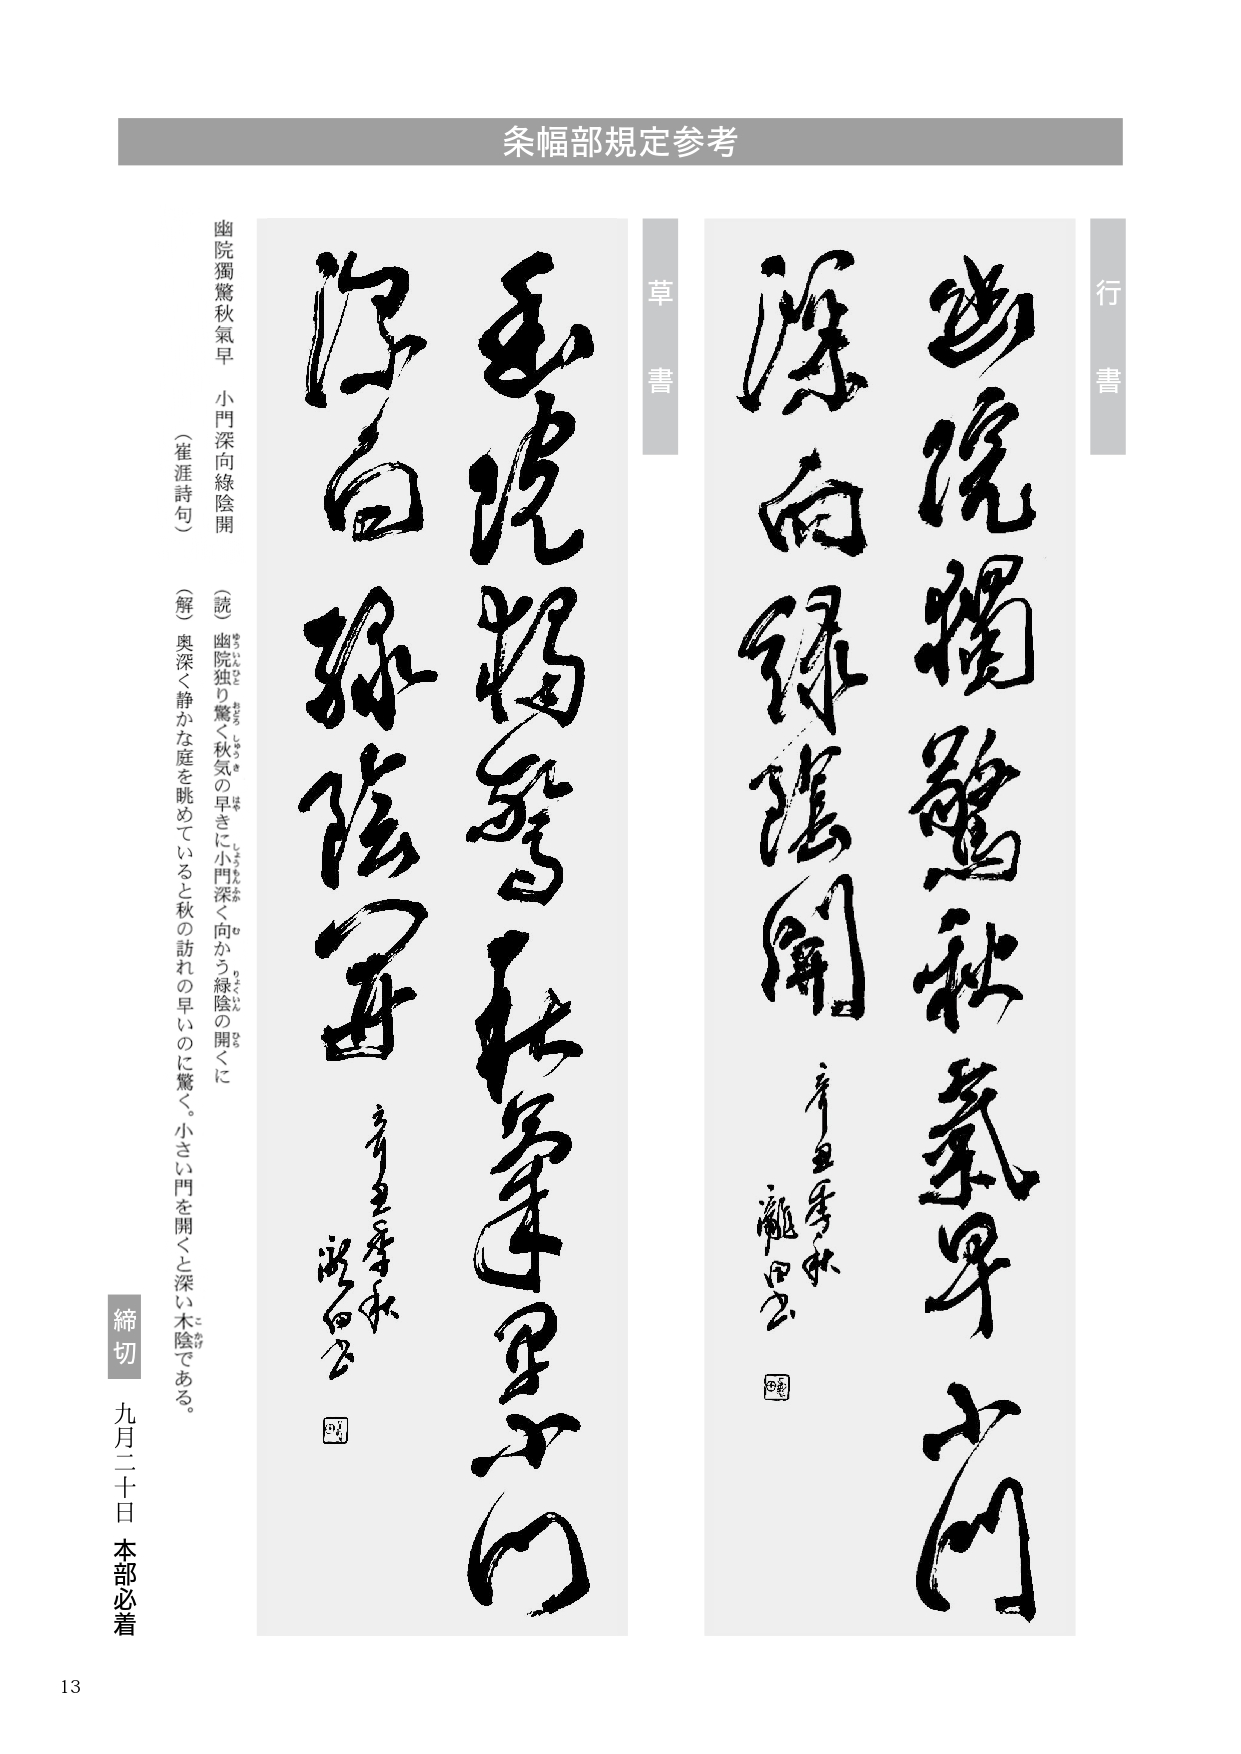 条幅部規定参考
行書
幽院獨驚秋氣早小門
深向緑陰開
辛丑季秋
龍田書
草書
幽院獨驚秋氣早小門
深向緑陰開
辛丑季秋
龍田書
幽院獨驚秋氣早　小門深向綠陰開
（崔涯詩句）
（読）幽院独り驚く秋気の早きに小門深く向かう緑陰の開くに
（解）奥深く静かな庭を眺めていると秋の訪れの早いのに驚く。小さい門を開くと深い木陰である。
締切　九月二十日　本部必着
13